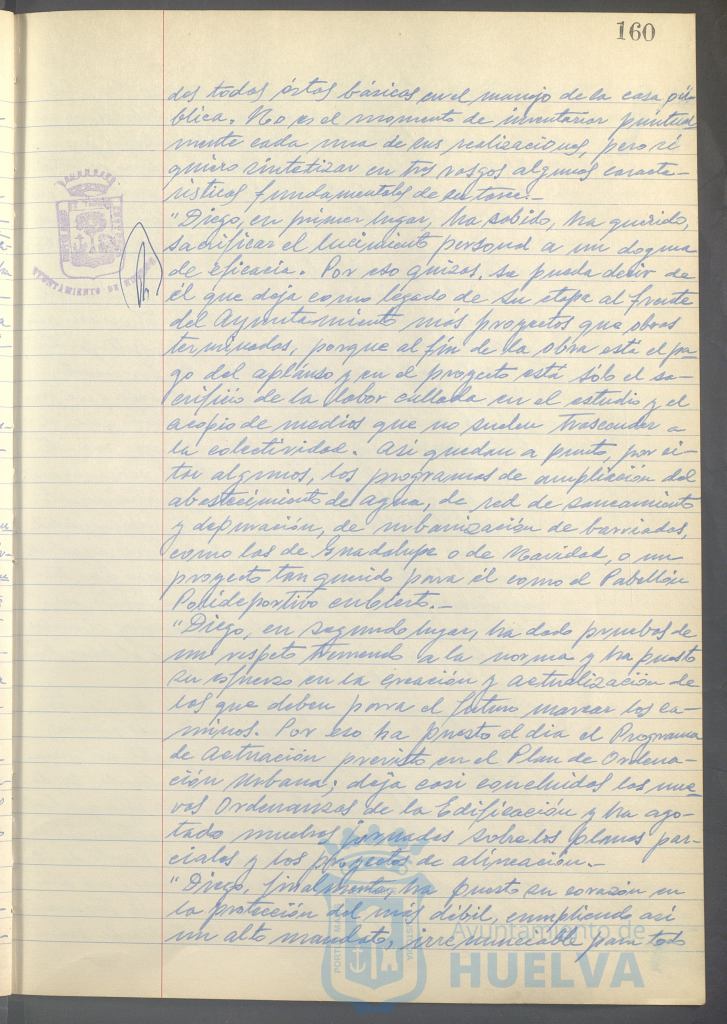 160
des todos éstos básicos en el manejo de la cosa pú-
blica. No es el momento de inventariar puntual
mente cada una de sus realizaciones, pero sí
quiero sintetizar en tres rasgos algunas caracte-
rísticas fundamentales de su tarea.-
"Diego, en primer lugar, ha sabido, ha querido,
sacrificar el lucimiento personal a un dogma
de eficacia. Por eso quizás, se pueda decir de
él que deja como legado de su etapa al frente
del Ayuntamiento más proyectos que obras
terminadas, porque al fin de la obra está el pa-
go del aplauso y en el proyecto está sólo el sa-
crificio de la labor callada en el estudio y el
acopio de medios que no suelen trascender a
la colectividad. Así quedan a punto, por ci-
tar algunos, los programas de ampliación del
abastecimiento de agua, de red de saneamiento
y depuración, de urbanización de barriadas,
como las de Guadalupe o de Navidad, o un
proyecto tan querido para él como el Pabellón
Polideportivo cubierto.-
"Diego, en segundo lugar, ha dado pruebas de
un respeto tremendo a la norma y ha puesto
su esfuerzo en la creación y actualización de
las que deben para el futuro marcar los ca-
minos. Por eso ha puesto al día el Programa
de Actuación previsto en el Plan de Ordena-
ción Urbana; deja casi concluidas las nue-
vas Ordenanzas de la Edificación y ha ago-
tado muchas jornadas sobre los planes par-
ciales y los proyectos de alineación.-
"Diego, finalmente, ha puesto su corazón en
la protección del más débil, cumpliendo así
un alto mandato, irrenunciable para todo
AYUNTAMIENTO DE HUELVA
Ayuntamiento de
HUELVA